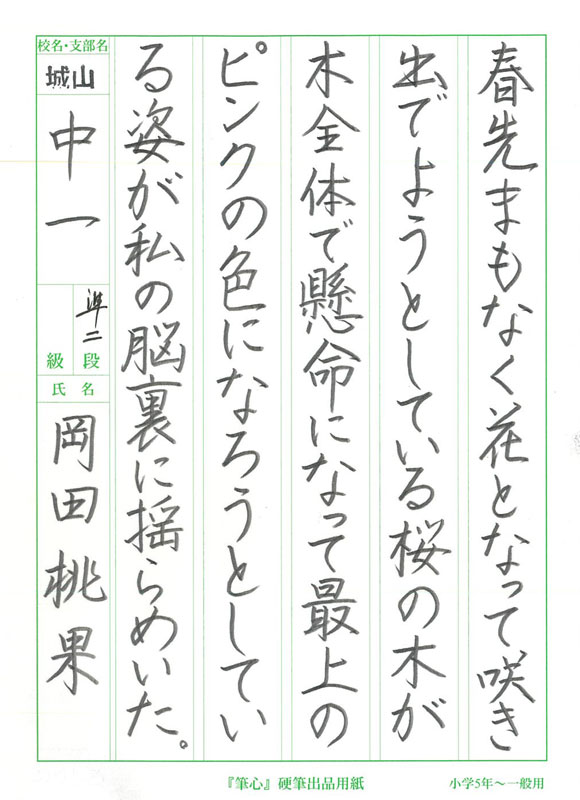 春先まもなく花となって咲き
出でようとしている桜の木が
木全体で懸命になって最上の
ピンクの色になろうとしてい
る姿が私の脳裏に揺らめいた。
校名・支部名
城山
中一
準二
段
級
氏名
岡田桃果
『筆心』硬筆出品用紙
小学5年～一般用